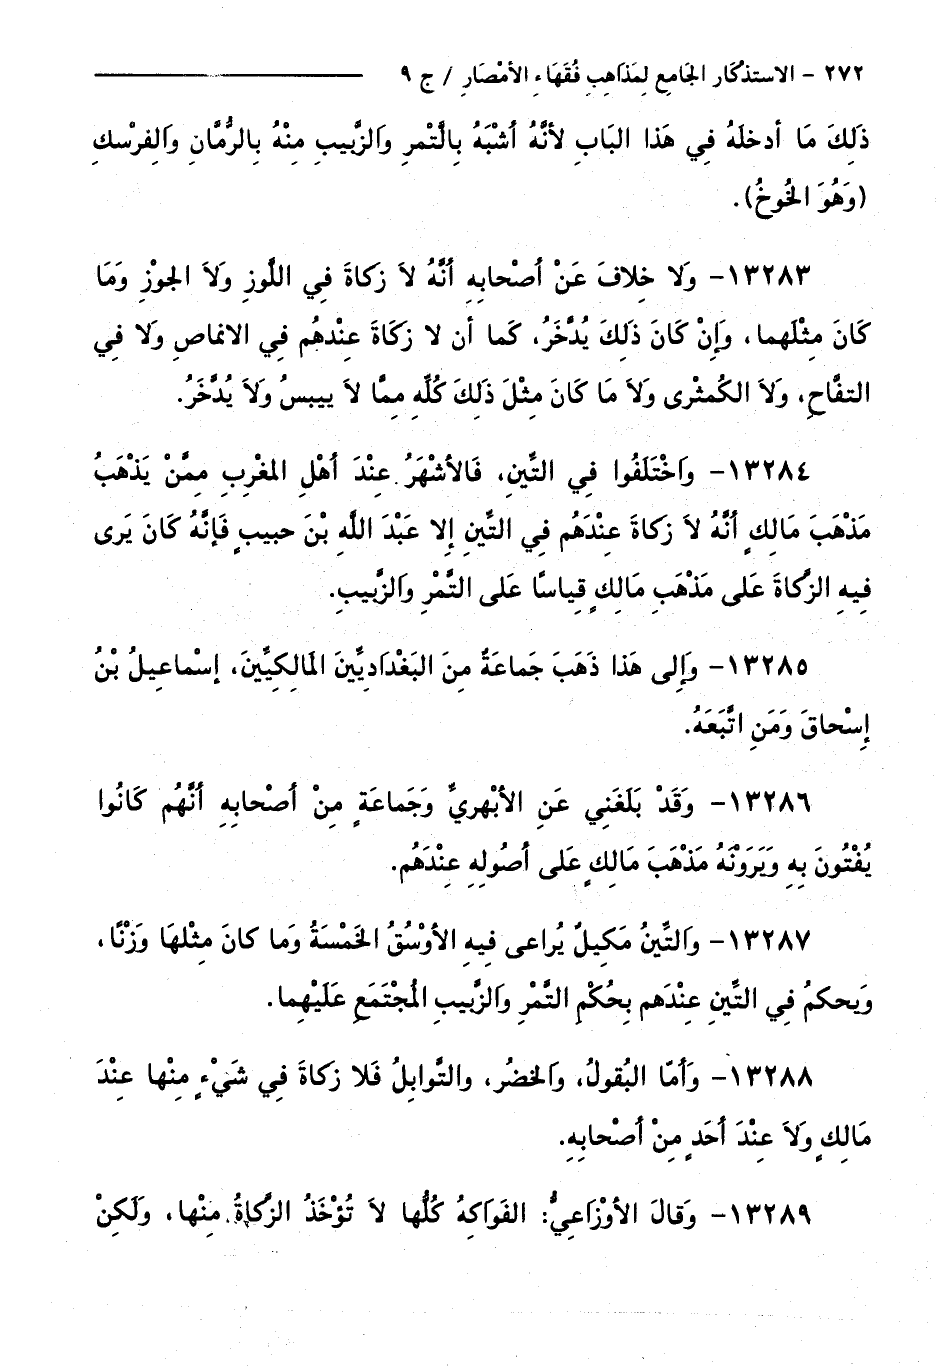 ٢٧٢ - الاستذكار الجَامِع لمَذاهِبِ فُقَهَاءِ الأمْصَارِ / ج ٩
ذَلِكَ مَا أدخلَهُ فِي هَذا البَابِ لأنَّهُ أشْبَهُ بِالتَّمْرِ وَالزَّبِيبِ مِنْهُ بِالرُّمَّانِ وَالفِرْسك
(وَهُوَ الخُوخُ).
١٣٢٨٣- وَلا خِلافَ عَنْ أصْحابِهِ أنَّهُ لاَ زكاةَ فِي اللَّوزِ وَلاَ الجوْزِ وَمَا
كَانَ مِثْلَهما، وَإنْ كَانَ ذَلِكَ يُدَّخَرُ، كَما أن لا زكَاةَ عِنْدهُم فِي الانماصِ وَلا فِي
التفَّاحِ، وَلاَ الكُمثْرى وَلاَ مَا كَانَ مِثْلَ ذَلكَ كُلِّهِ مِمَّا لاَ ييبسُ وَلاَ يُدَّخَرُ.
١٣٢٨٤- وَاخْتَلَفُوا فِي التَّينِ، فَالأشْهَرُ عِندَ أهْلِ المغْربِ مِمَّنْ يَذْهَبُ
مَذْهَبَ مَالِكٍ أنَّهُ لاَ زكاةَ عنْدَهُم فِي التَّينِ إلا عَبْدَ اللَّهِ بْنَ حبيبٍ فَإنَّهُ كَانَ يَرى
فِيهِ الزَّكاةَ عَلى مَذْهَبِ مَالِكٍ قياسًا عَلى التَّمْرِ وَالزَّبِيبِ.
١٣٢٨٥- وَإِلى هَذا ذَهَبَ جَماعَةٌ مِنَ البَغْدَادِيِّينَ المَالِكيِّينَ، إسْماعِيلُ بْنُ
إِسْحاقَ وَمَنِ اتَّبَعَهُ.
١٣٢٨٦- وَقَدْ بَلَغَنِي عَنِ الأبْهريِّ وَجَماعَةٍ مِنْ أصْحابِهِ أنَّهُم كَانُوا
يُفْتُونَ بِهِ وَيَرَوْنَهُ مَذْهَبَ مَالِكٍ عَلى أُصُولِهِ عِنْدَهُم.
١٣٢٨٧- وَالتِّينُ مَكِيلٌ يُراعى فِيهِ الأوْسُقُ الخَمْسَةُ وَما كانَ مِثْلهَا وَزْنًا،
وَيحكمُ فِي التَّينِ عِنْدَهم بِحُكْمِ التَّمْرِ وَالزَّبيبِ المُجْتَمَعِ عَلَيْهِما.
١٣٢٨٨- وَأمَّا البُقولُ، وَالخضرُ، والتَّوابلُ فَلا زكاةَ فِي شَيْءٍ مِنْها عِنْدَ
مَالِكٍ وَلاَ عِنْدَ أحَدٍ مِنْ أصْحابِهِ.
١٣٢٨٩- وَقالَ الأوْزَاعِيُّ: الفَوَاكِهُ كُلُّها لاَ تُؤْخَذُ الزَّكاةُ مِنْها، وَلَكِنْ